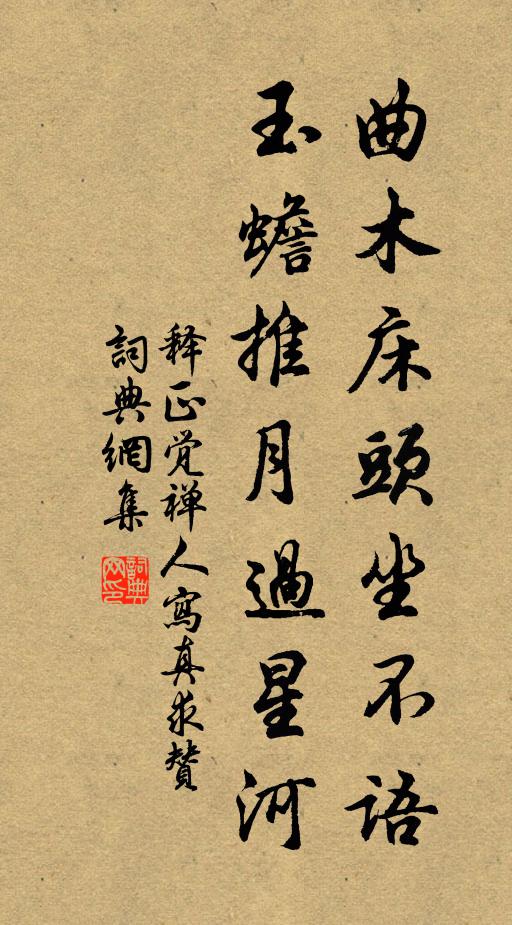 曲木床頭坐不語
玉蟾推月過星河
釋正觉禅人寫真求贊
詞典網集
詞典網印